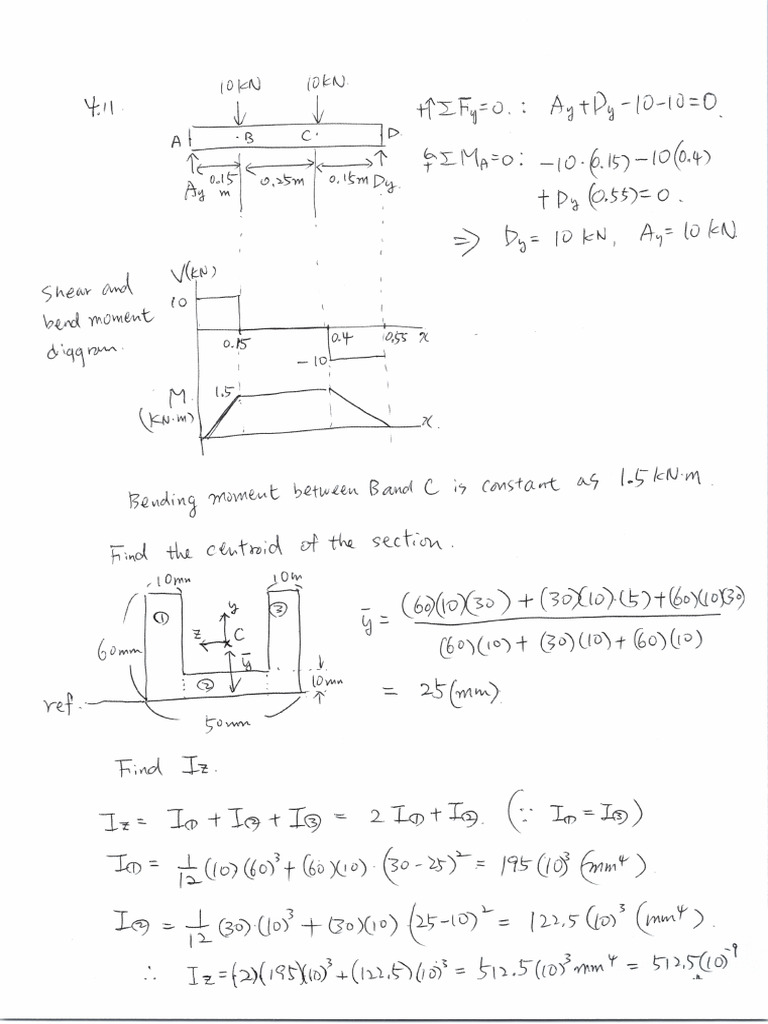 4.11
10 kN 10 kN
A B C D
Ay 0.15 m 0.25m 0.15m Dy
+↑ΣFy=0. : Ay+Dy-10-10=0.
ΣMA=0: -10·(0.15)-10(0.4)
+Dy(0.55)=0.
⇒ Dy = 10 kN, Ay = 10 kN
Shear and
bend moment
diagram.
V(kN)
10
0.15 0.4 0.55 x
-10
M
(KN·m)
1.5
x
Bending moment between B and C is constant as 1.5 kN·m.
Find the centroid of the section.
10mm 10m
① ③
y
z C
ȳ
60mm
② 10mm
ref.
50mm
ȳ = ((60)(10)(30) + (30)(10)·(5)+(60)(10)(30)) / ((60)(10) + (30)(10) + (60)(10))
= 25(mm)
Find Iz.
Iz = I① + I② + I③ = 2 I① + I②. (∵ I① = I③)
I① = 1/12 (10)(60)³ + (60)(10)·(30-25)² = 195(10)³ (mm⁴)
I② = 1/12 (30)·(10)³ + (30)(10)(25-10)² = 122.5(10)³ (mm⁴).
∴ Iz = (2)(195)(10)³ + (122.5)(10)³ = 512.5(10)³ mm⁴ = 512.5(10)⁻⁹